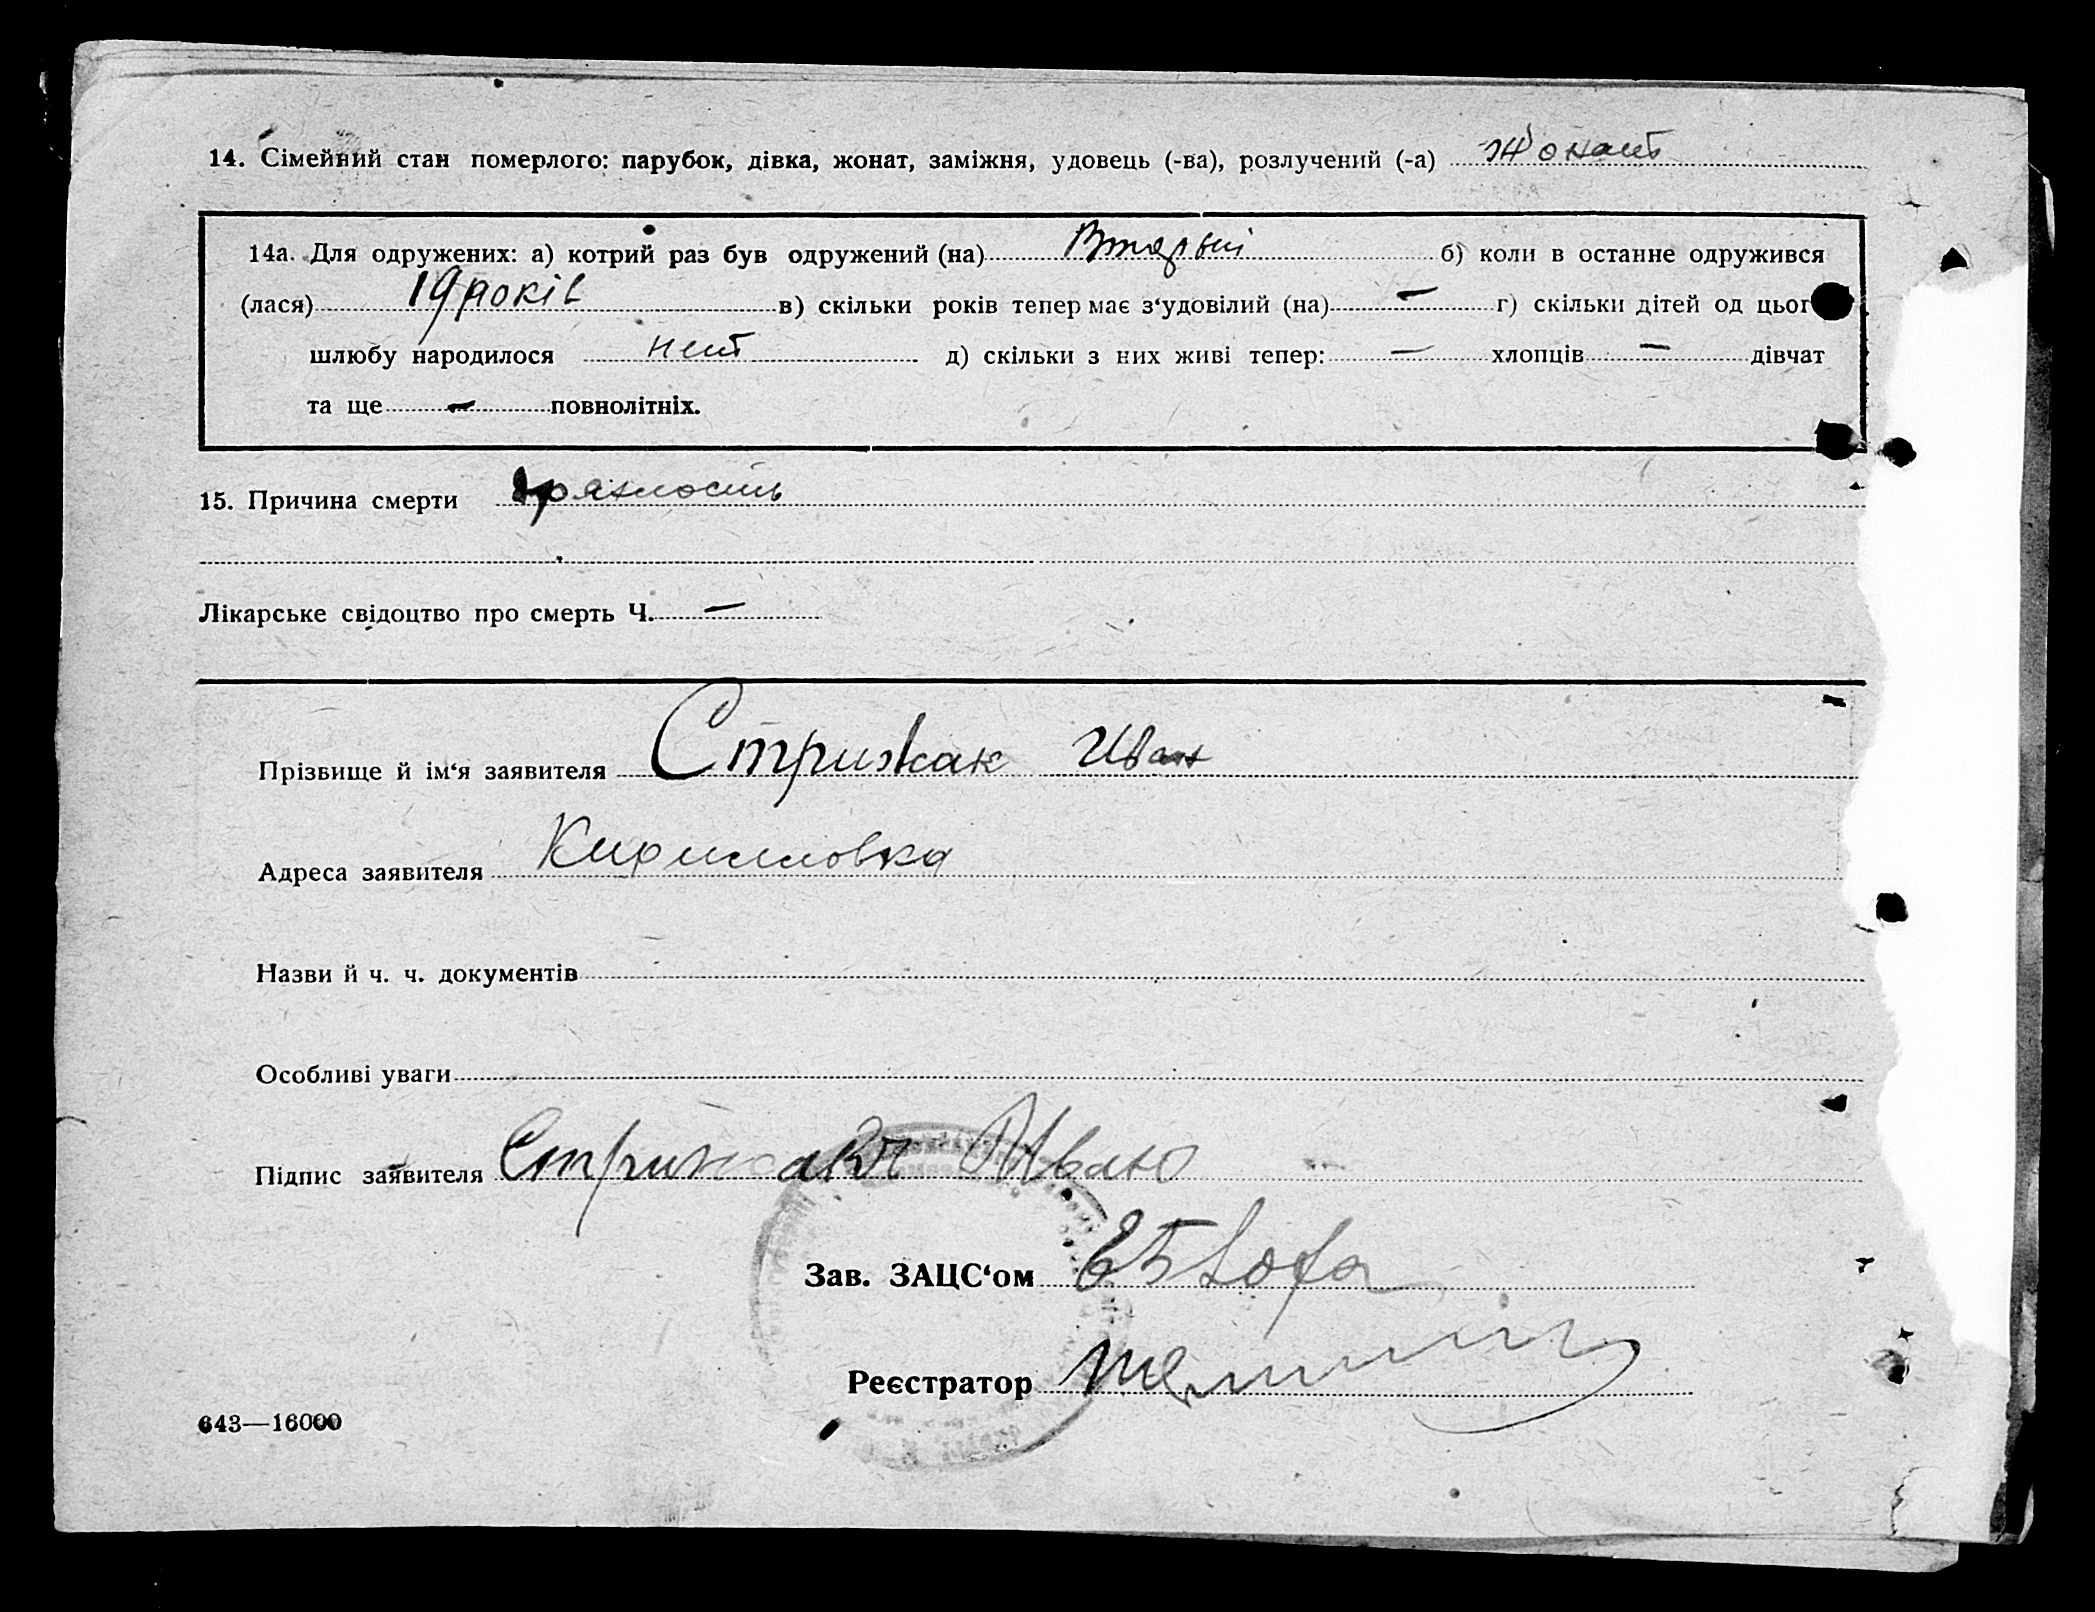 14. Сімейний стан померлого: парубок, дівка, жонат, заміжня, удовець (-ва), розлучений (-а) Жонат
14а. Для одружених: а) котрий раз був одружений (на) б) коли в останне одружився
(лася) 19 років в) скільки років тепер має з‘удовілий (на) — г) скільки дітей од цьог
шлюбу народилося нет д) скільки з них живі тепер: — хлопців — дівчат
та ще — повнолітніх.
15. Причина смерти дряхлость
Лікарське свідоцтво про смерть Ч. —
Прізвище й ім‘я заявителя Стрижак Иван
Адреса заявителя Кирилловка
Назви й ч. ч. документів
Особливі уваги
Підпис заявителя Стрижак
Зав. ЗАЦС‘ом
Реєстратор
643—16000